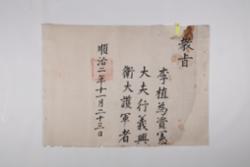 教旨
李植為資憲
大夫行義興
衛大護軍者
順治二年十一月二十三日